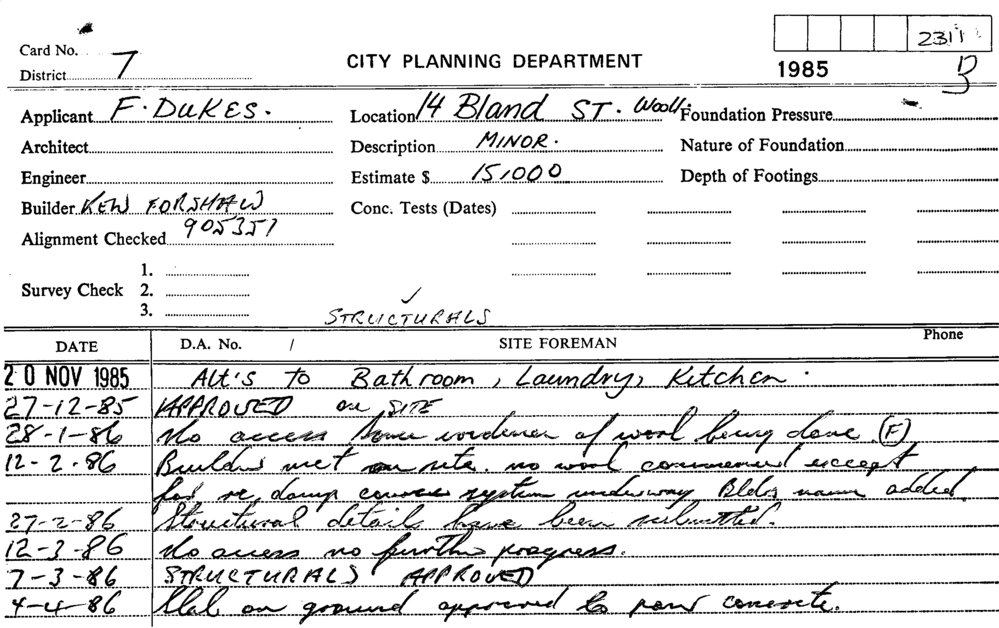 2311
Card No.
CITY PLANNING DEPARTMENT
1985
District 7
Applicant F. DUKES. Location 14 Bland ST. Wooll Foundation Pressure
Architect Description MINOR. Nature of Foundation
Engineer Estimate $ 15,000 Depth of Footings
Builder KEN FORSHAW Conc. Tests (Dates)
Alignment Checked 905357
1.
Survey Check 2.
3.
✓
STRUCTURALS
DATE D.A. No. / SITE FOREMAN Phone
20 NOV 1985 Alt's to Bathroom, Laundry, Kitchen.
27-12-85 APPROVED on SITE
28-1-86 No access some evidence of work being done (F)
12-2-86 Builder met on site. no work commenced except
for re, damp course system underway Bldrs name added.
27-2-86 Structural details have been submitted.
12-3-86 No access no further progress.
7-3-86 STRUCTURALS APPROVED
4-4-86 Slab on ground approved to pour concrete.